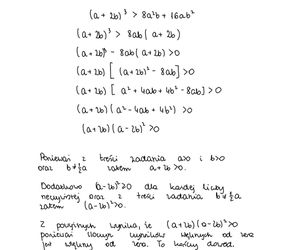 (a + 2b)³ > 8a²b + 16ab²
(a + 2b)³ > 8ab (a + 2b)
(a + 2b)³ - 8ab (a + 2b) > 0
(a + 2b) [ (a + 2b)² - 8ab ] > 0
(a + 2b) [ a² + 4ab + 4b² - 8ab ] > 0
(a + 2b) (a² - 4ab + 4b²) > 0
(a + 2b) (a - 2b)² > 0
Ponieważ z treści zadania a>0 i b>0
oraz b ≠ ½a zatem a + 2b > 0.
Dodatkowo (a - 2b)² ≥ 0 dla każdej liczby
rzeczywistej oraz z treści zadania b ≠ ½a
zatem (a - 2b)² > 0.
Z powyższych wynika, że (a + 2b)(a - 2b)² > 0
ponieważ iloczyn wyników większych od zera
jest większy od zera. To kończy dowód.